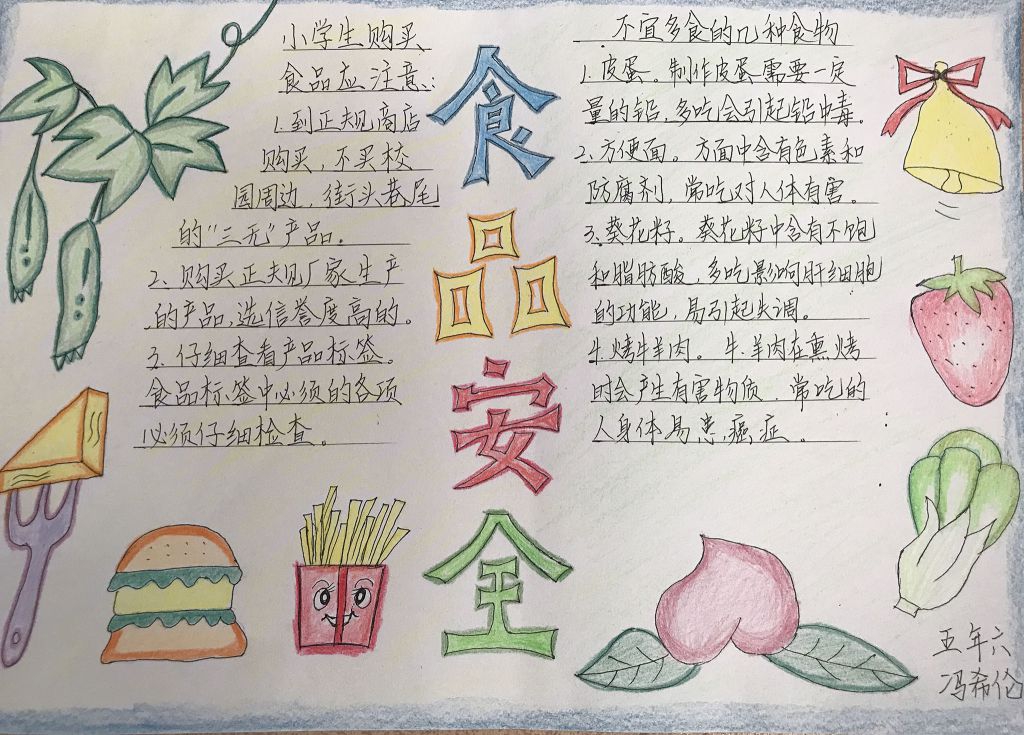 小学生购买
食品应注意:
1.到正规商店
购买,不买校
园周边,街头巷尾
的“三无”产品。
2、购买正规厂家生产
的产品,选信誉度高的。
3.仔细查看产品标签。
食品标签中必须的各项
必须仔细检查。
食品安全
不宜多食的几种食物
1.皮蛋。制作皮蛋需要一定
量的铅,多吃会引起铅中毒。
2.方便面。方面中含有色素和
防腐剂,常吃对人体有害。
3.葵花籽。葵花籽中含有不饱
和脂肪酸,多吃影响肝细胞
的功能,易引起失调。
4.烤牛羊肉。牛.羊肉在熏烤
时会产生有害物质.常吃的
人身体易患癌症。
五年六
冯希伦